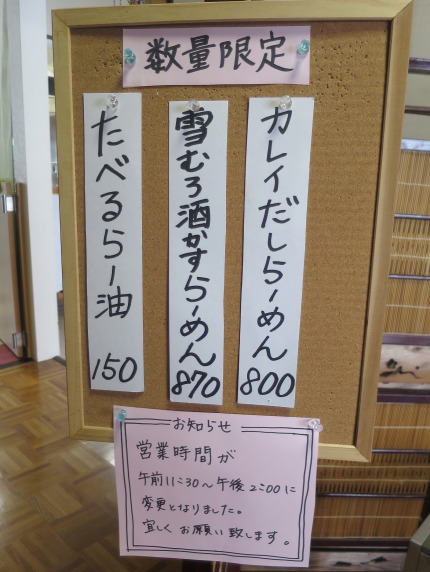 数量限定
カレイだしらーめん 800
雪むろ酒かすらーめん 870
たべるらー油 150
お知らせ
営業時間が
午前11:30～午後2:00に
変更となりました。
宜しくお願い致します。